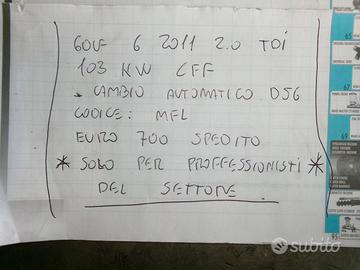 GOLF 6 2011 2.0 TDI
103 KW CFF
- CAMBIO AUTOMATICO DSG
CODICE: MFL
EURO 700 SPEDITO
* SOLO PER PROFFESSIONISTI *
DEL SETTORE
subito